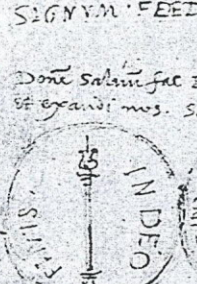 SIGNVM · FEED
Done saluū fac
et exaudi nos. S
IN DEO